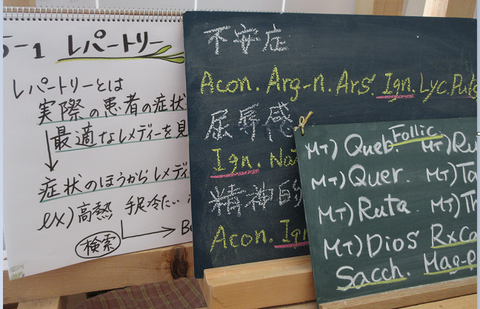 5-1 レパートリー
レパートリーとは
実際の患者の症状
最適なレメディーを見
症状のほうからレメディ
ex) 高熱 手足冷たい
検索
不安症
Acon. Arg-n. Ars. Ign. Lyc. Puls
屈辱感
Ign. Na
精神的
Acon. Ign
MT) Queb Follic MT) Ru
MT) Quer. MT) Ta
MT) Ruta MT) Th
MT) Dios Rxca
Sacch. Mag-p